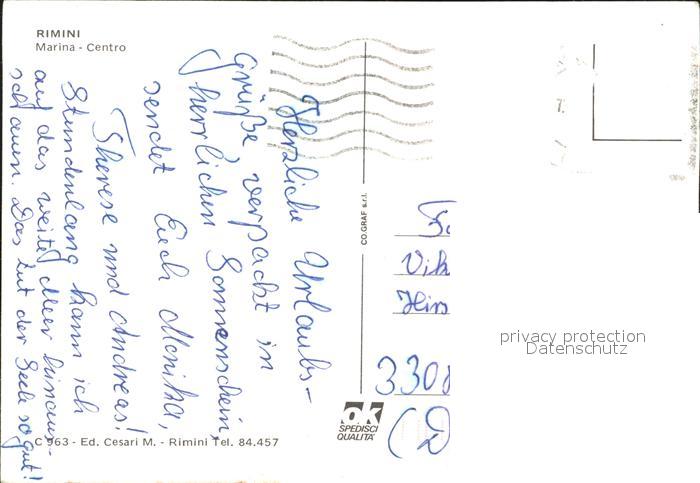 RIMINI
Marina - Centro
Herzliche Urlaubs-
grüße verpackt in
herrlichen Sonnenschein,
sendet Euch Monika,
Therese und Andreas!
Stundenlang kann ich
auf das weite Meer hinaus-
schauen. Das tut der Seele so gut!
CO.GRAF s.r.l.
Vik
Hin
3308
(D
privacy protection
Datenschutz
ok
SPEDISCI
QUALITA'
C 963 - Ed. Cesari M. - Rimini Tel. 84.457